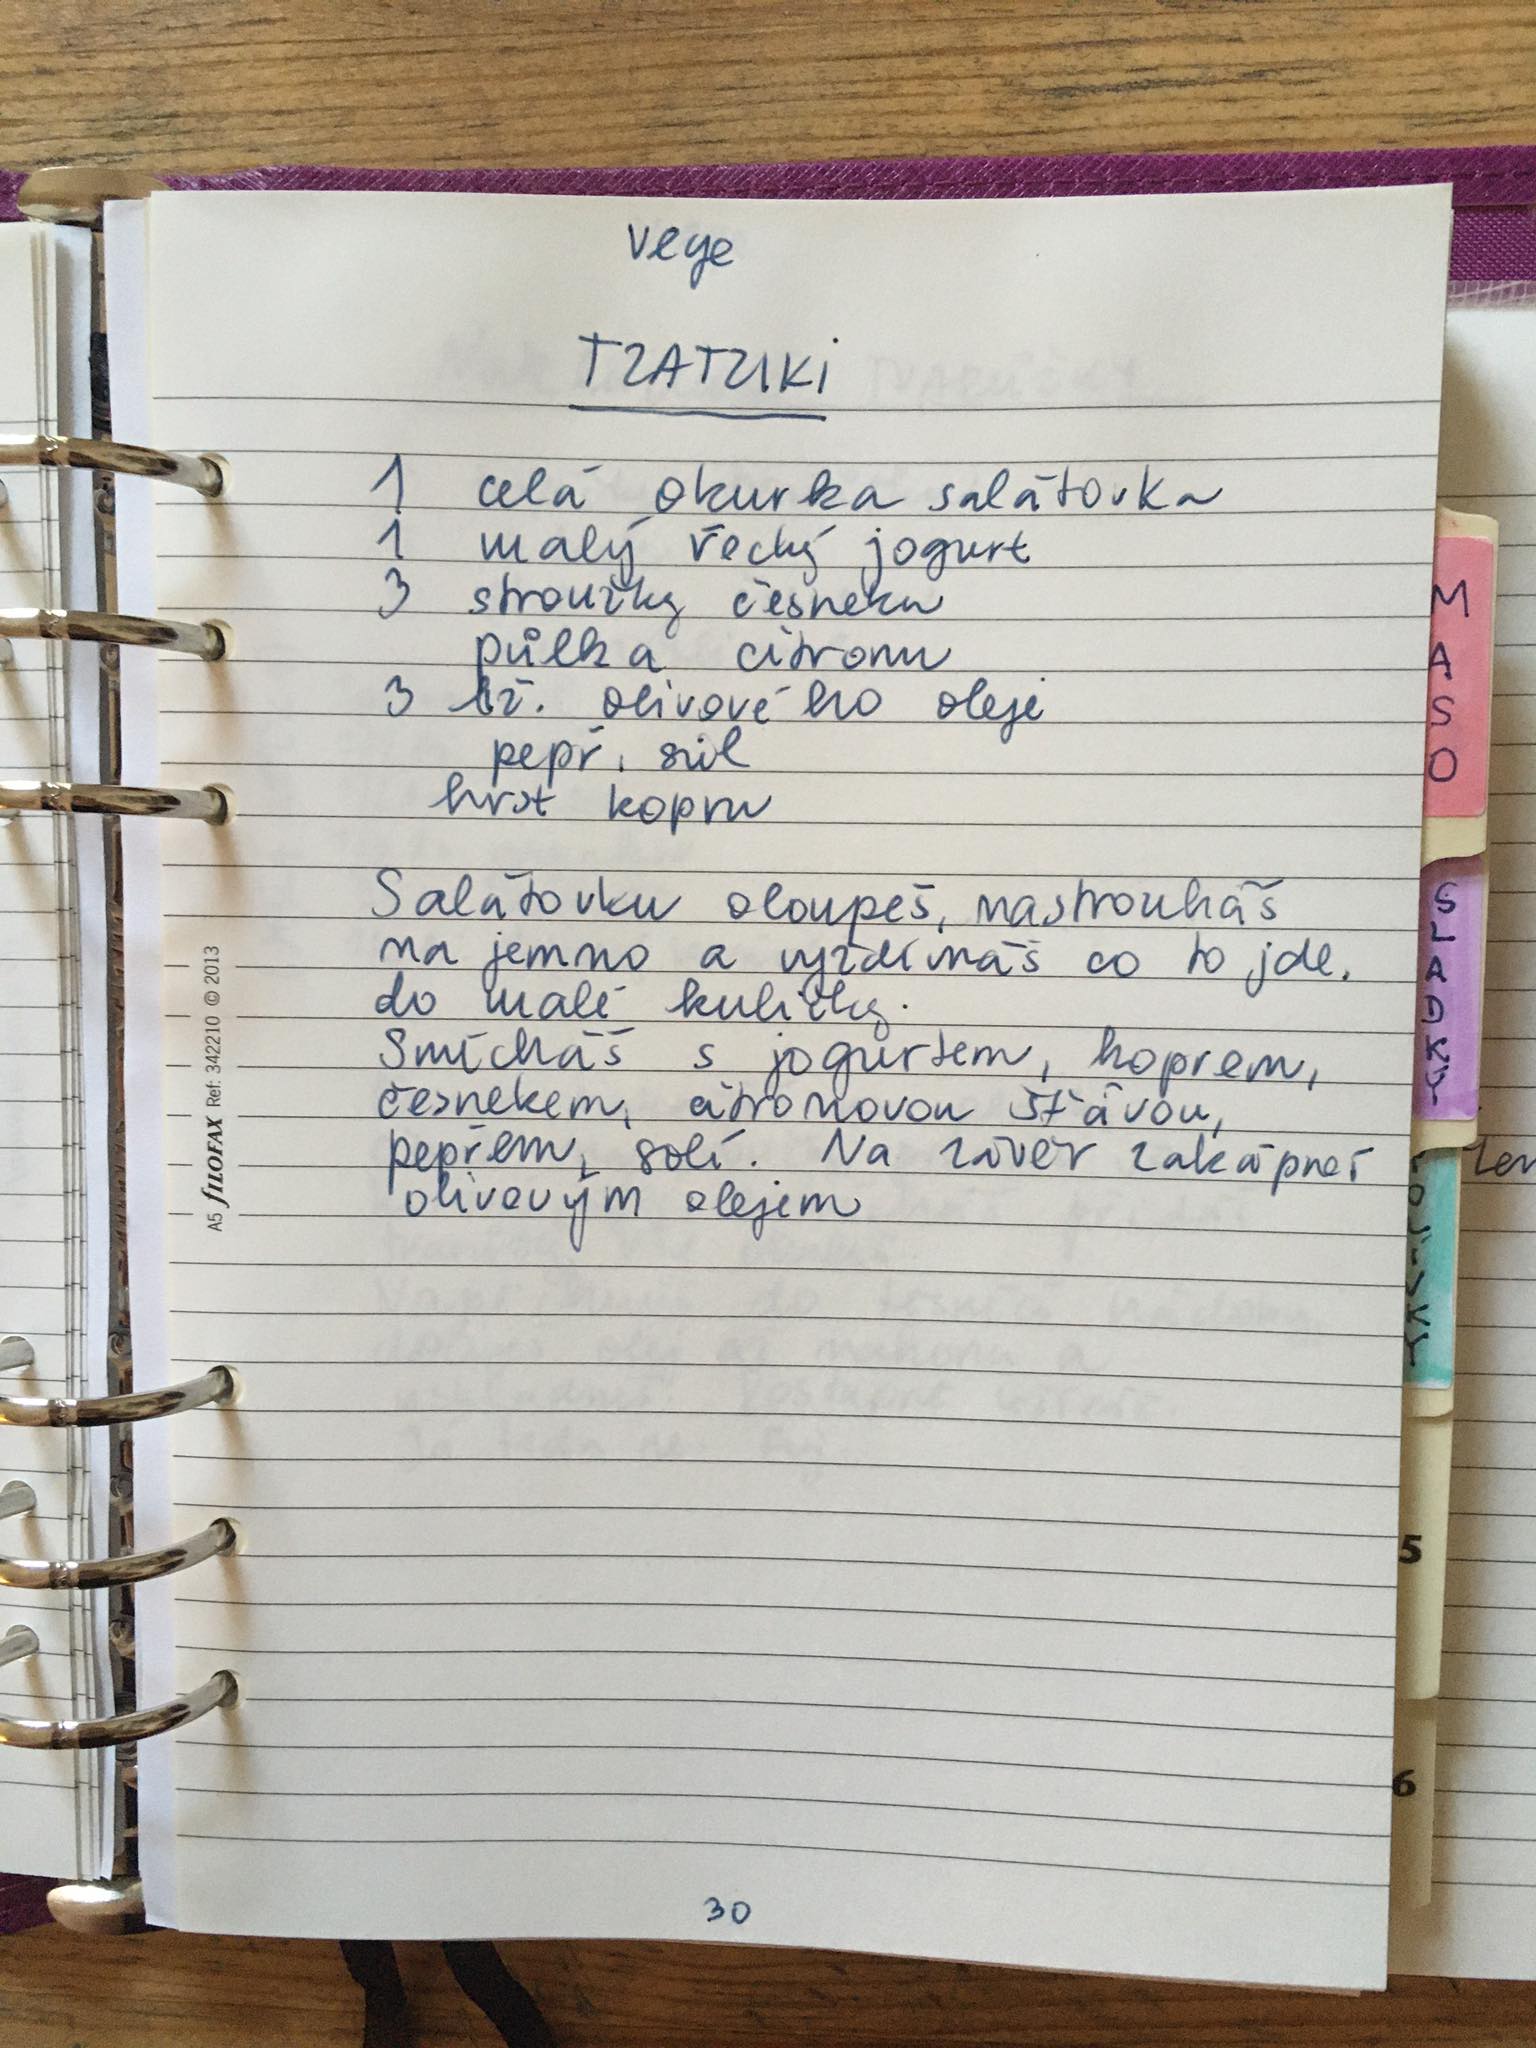 vege
TZATZIKi
1 celá okurka salátovka
1 malý řecký jogurt
3 stroužky česneku
půlka citronu
3 lž. olivového oleje
pepř, sůl
hrst kopru
Salátovku oloupeš, nastrouháš
na jemno a vyždímáš co to jde.
do malé kuličky.
Smícháš s jogurtem, koprem,
česnekem, citronovou šťávou,
pepřem, solí. Na závěr zakápneš
olivovým olejem
30
A5 fiLOFAX Ref: 342210 © 2013
MASO
SLADKÝ
5
6